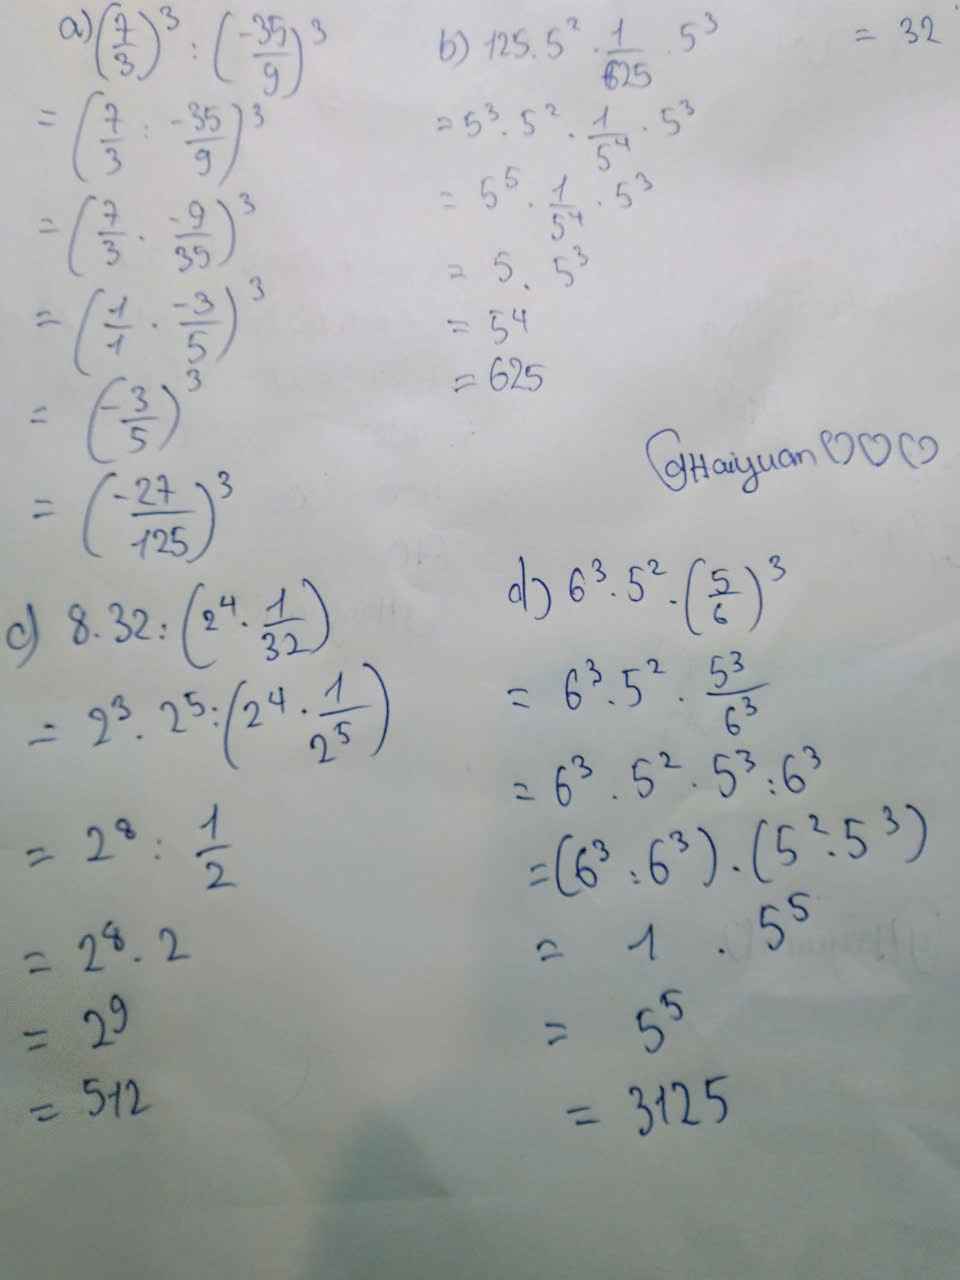 a) (7/3)³ : (-35/9)³
= (7/3 : -35/9)³
= (7/3 . -9/35)³
= (1/1 . -3/5)³
= (-3/5)³
= (-27/125)³
b) 125.5² . 1/625 . 5³
= 5³. 5² . 1/5⁴ . 5³
= 5⁵ . 1/5⁴ . 5³
= 5 . 5³
= 5⁴
= 625
= 32
@Haiyuan♡♡♡
c) 8.32 : (2⁴ . 1/32)
= 2³. 2⁵ : (2⁴ . 1/2⁵)
= 2⁸ : 1/2
= 2⁸. 2
= 2⁹
= 512
d) 6³. 5² . (5/6)³
= 6³. 5² . 5³/6³
= 6³ . 5² . 5³ : 6³
= (6³ : 6³) . (5² . 5³)
= 1 . 5⁵
= 5⁵
= 3125